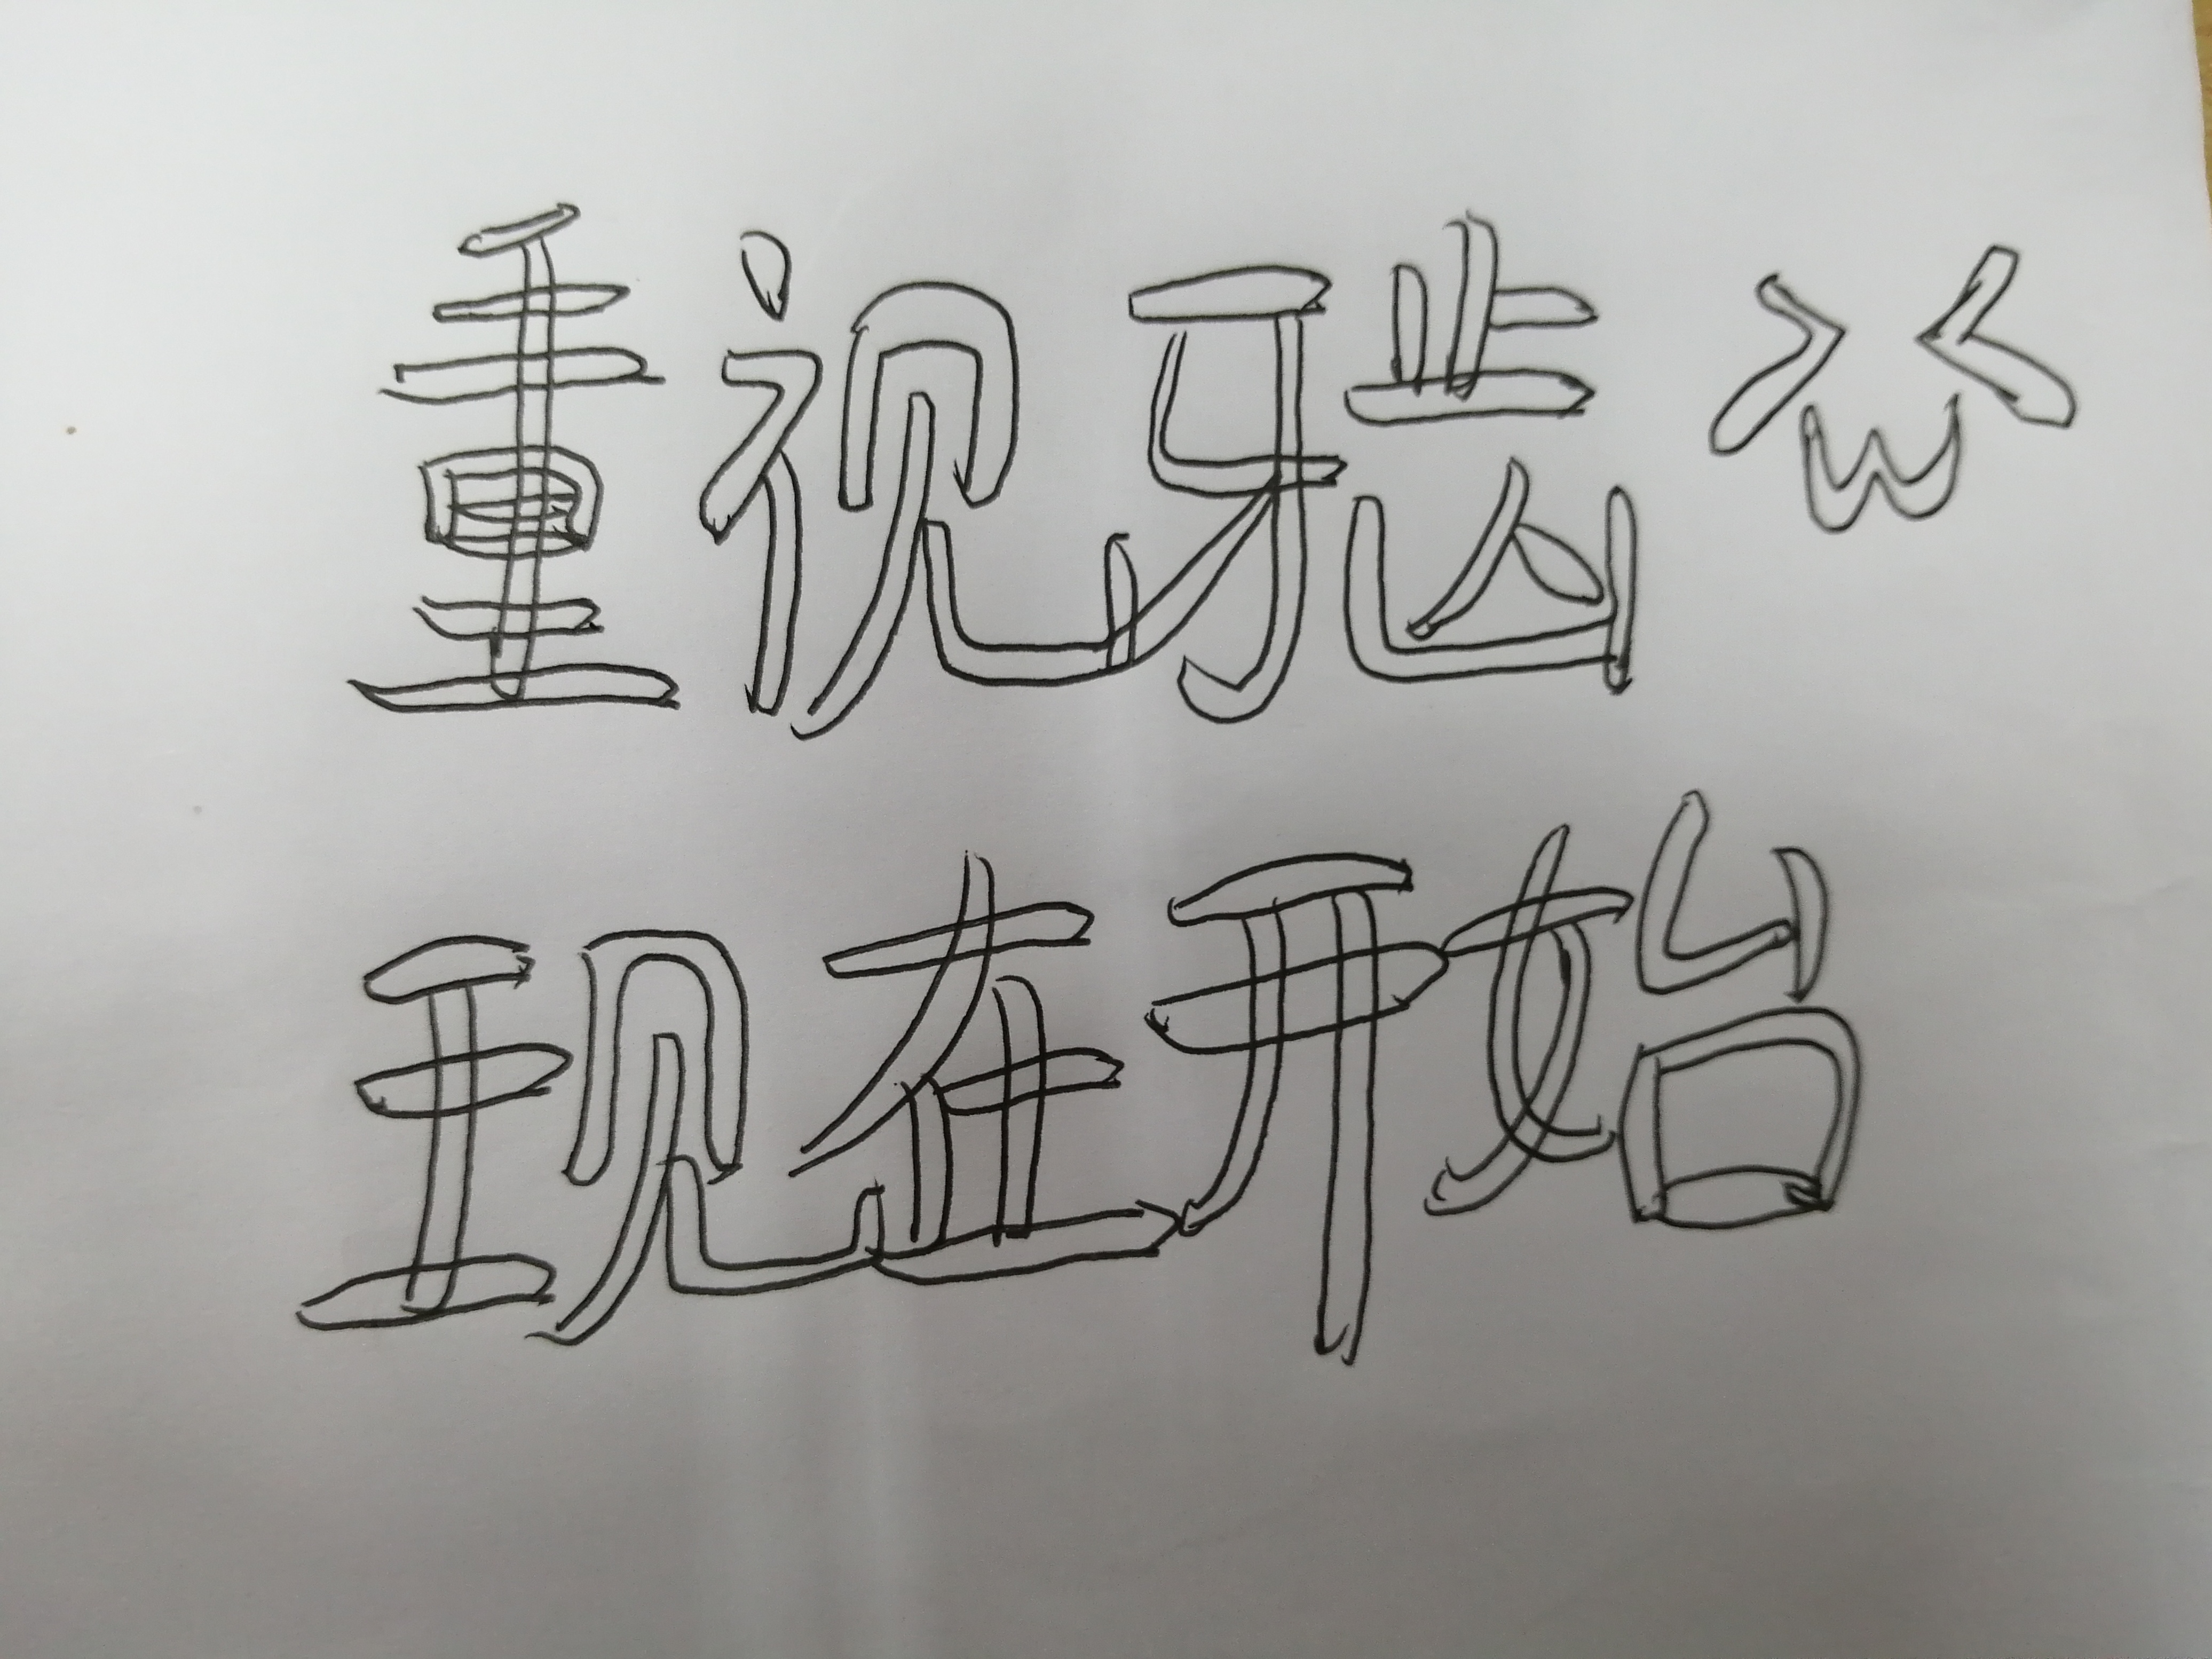 重视牙齿 >w<
现在开始